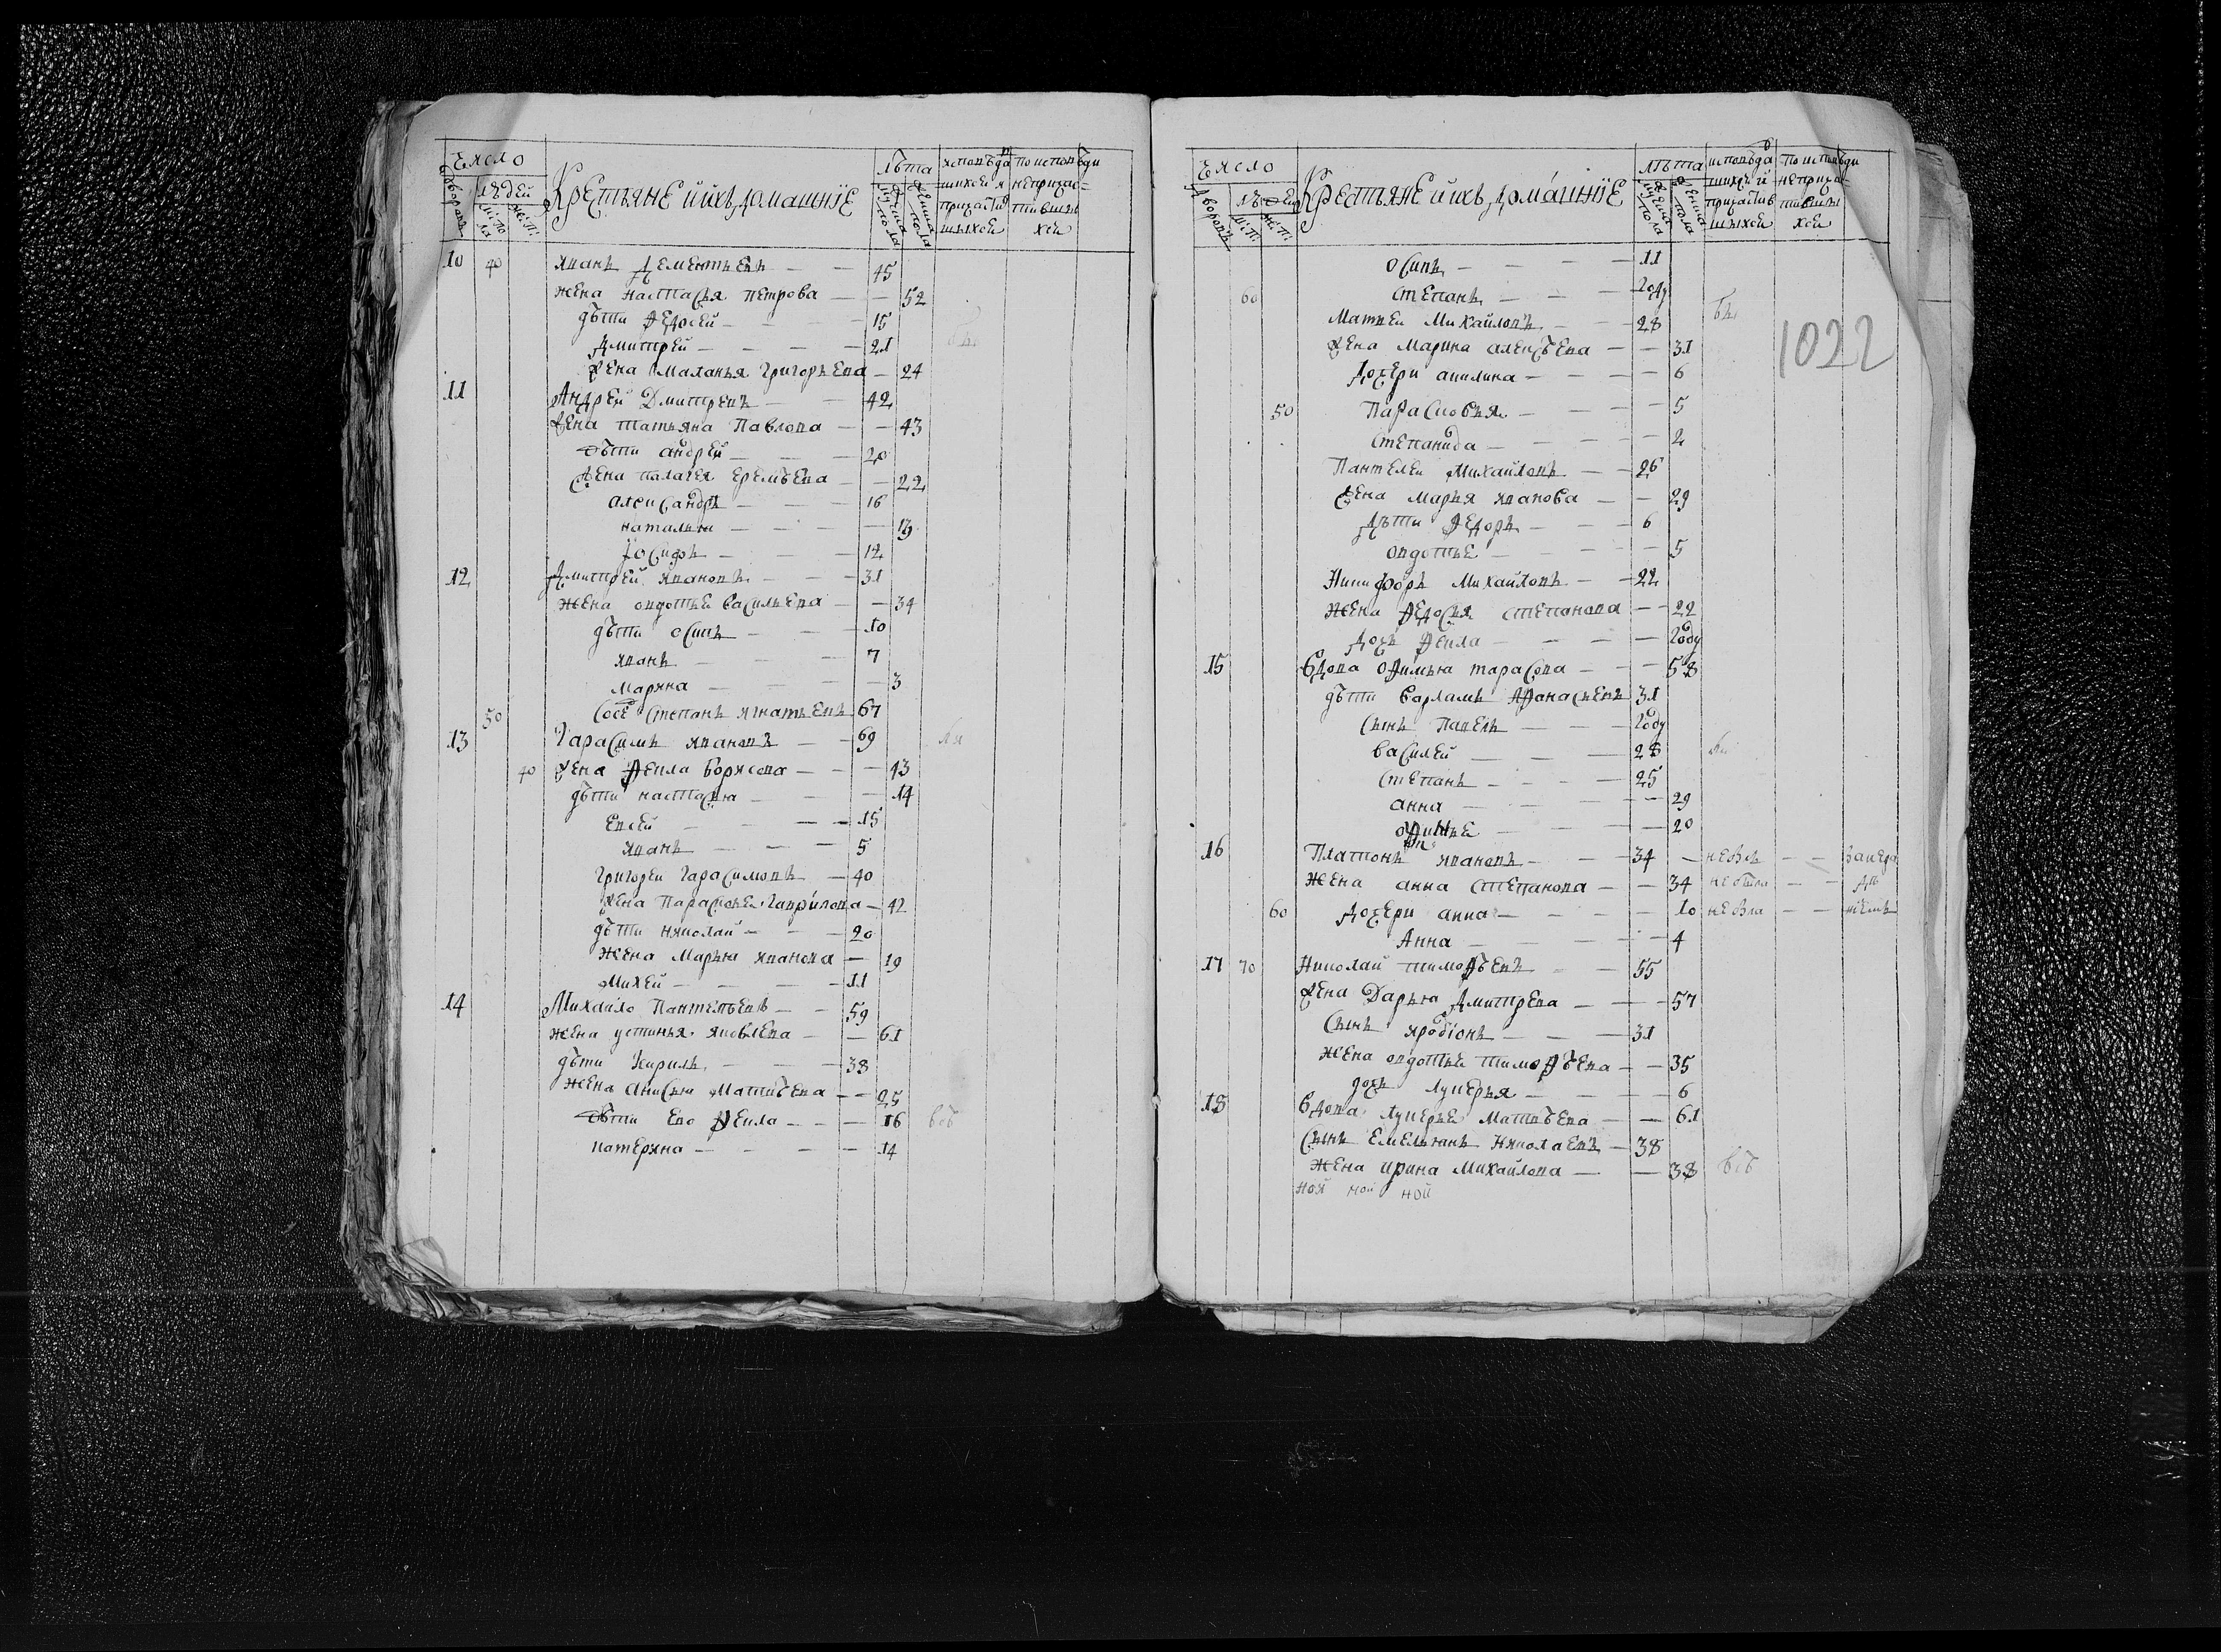 Число
людей
дворовъ
м: по
ла
ж: п:
Крестьяне и ихъ домашніе
Лѣта
мужеска пола
женска пола
исповѣда
шихся и
причастив
шихся
по исповѣди
непричас=
тившых
хся
10 40 Иванъ Дементьевъ — — 45
жена настасья петрова — — 52
дѣти Федосей — — 15
Дмитрей — — — — 21
жена маланья григорьева — 24
11 Андрей Дмитревъ — — 42
жена татьяна Павлова — — 43
дѣти андрей — — 20
жена палагея еремѣева — — 22
александръ — — — 16
наталья — — — — 19
Іосифъ — — — 12
12 Дмитрей Ивановъ — — — 31
жена овдотья васильева — — 34
дѣти осипъ — — — 10
Иванъ — — — 7
Марина — — — — 3
50 Степанъ игнатьевъ 67
13 Гарасимъ Ивановъ — — 69
40 жена Фекла борисова — — — 43
дѣти настасья — — — — 14
Евсей — — — — 15
Иванъ — — — 5
григорей Гарасимовъ — 40
жена Парасковья Гаврилова — 42
дѣти николай — — — 20
жена Марья Иванова — 19
Михей — — — — 11
14 Михаило Пантелѣевъ — — 59
жена устинья яковлева — — 61
дѣти Кирилъ — — — 38
жена Анисья Матвѣева — — 25
дѣти ево Фекла — — — 16 всѣ
катерина — — — — 14
Число
дворовъ
людей
м: п:
ж: п:
Крестьяне и ихъ домашніе
Лѣта
мужеска пола
женска пола
исповѣда
шихся и
причастив
шихся
по исповѣди
непричас=
тившы
хся
1022
осипъ — — — — 11
60 степанъ — — — году
Матвеи Михаиловъ — — — 28
жена Марина алексѣева — — 31
дочери акилина — — — — 6
50 Парасковья — — — — 5
степанида — — — — 2
Пантелеи Михаиловъ — — 26
жена Марья Иванова — — 29
дѣти Федоръ — — — 6
овдотья — — — — 5
Никифоръ Михаиловъ — — 22
жена Федосья степанова — — 22
дочь Фекла — — — — году
15 вдова офимья тарасова — — — 58
дѣти варламъ Афанасьевъ 31
сынъ Павелъ — — — году
василей — — — 28
степанъ — — — 25
анна — — — — 29
— — — 20
16 Платонъ ивановъ — — — 34
жена анна степанова — — 34 не была — —
60 дочери анна — — — — 10
Анна — — — — 4
17 70 Николаи тимофѣевъ — — 55
жена Дарья Дмитрева — — — 57
сынъ иродіонъ — — — 31
жена овдотья тимофѣева — — 35
дочь лукерья — — — — 6
18 вдова лукерья Матвѣева — — 61
сынъ Емельянъ Николаевъ — 38
жена ирина Михаилова — — 38 всѣ
ной ной ной